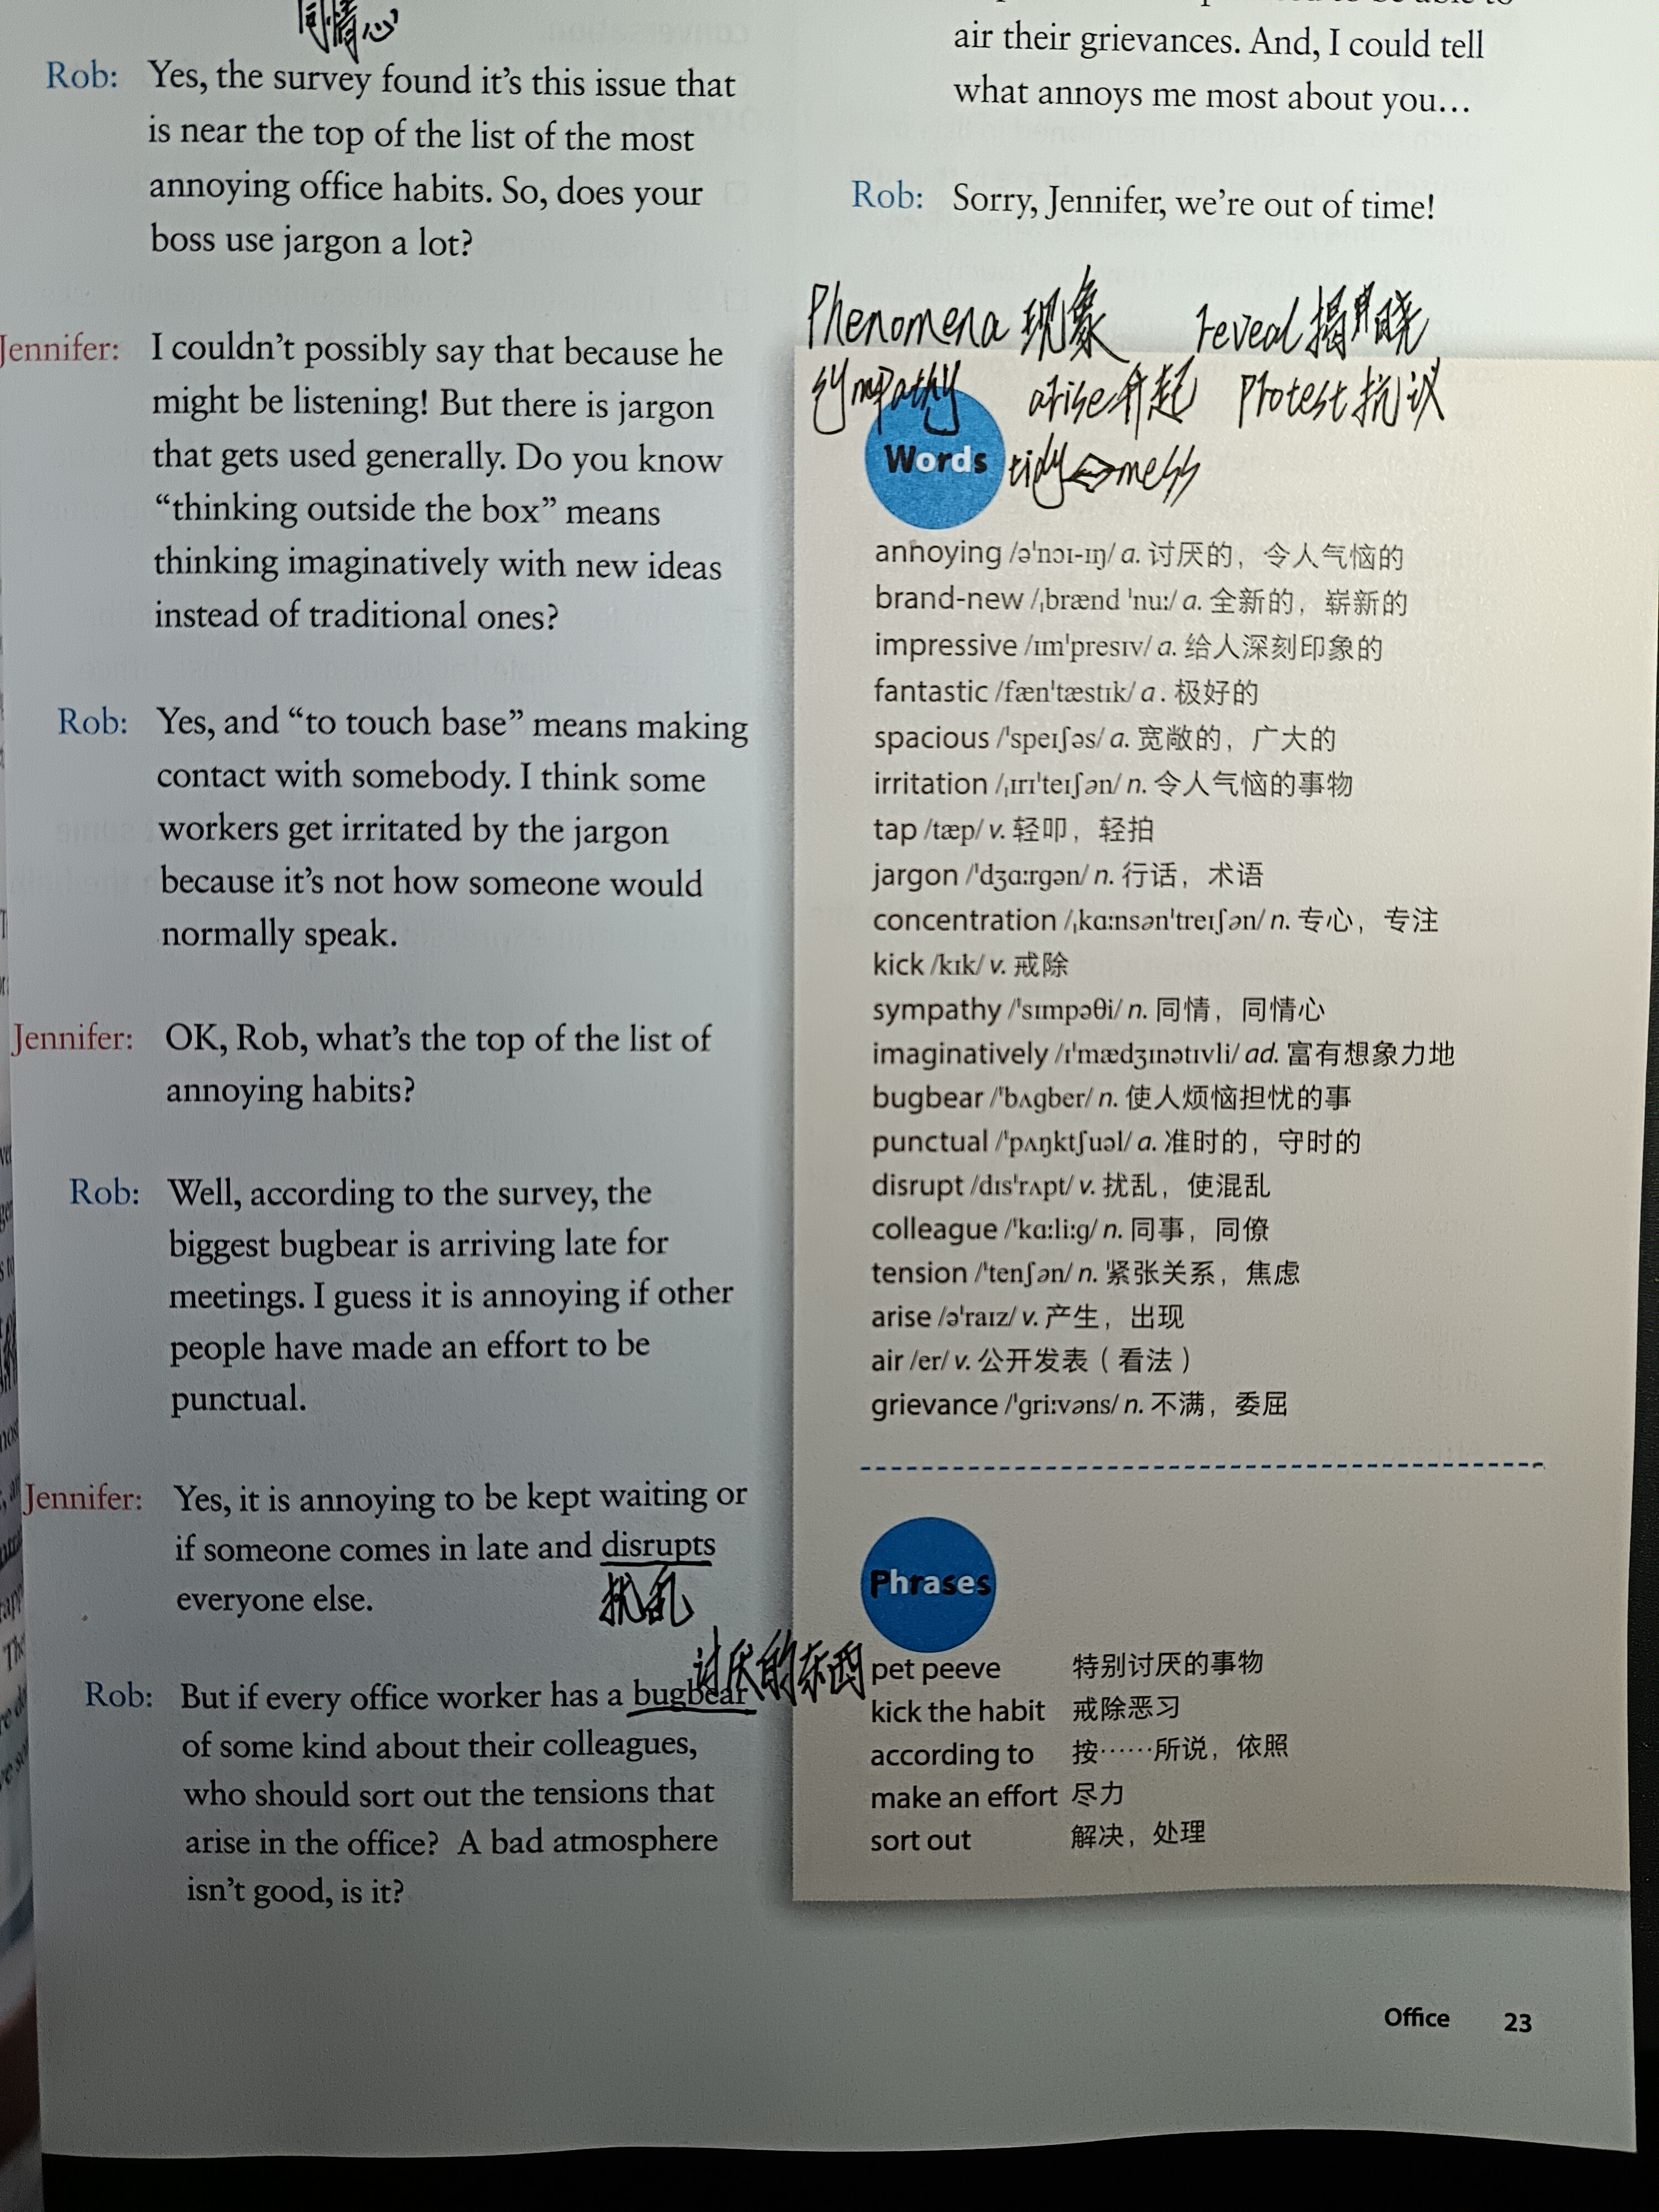 同情心
Rob: Yes, the survey found it's this issue that
is near the top of the list of the most
annoying office habits. So, does your
boss use jargon a lot?
Jennifer: I couldn't possibly say that because he
might be listening! But there is jargon
that gets used generally. Do you know
“thinking outside the box” means
thinking imaginatively with new ideas
instead of traditional ones?
Rob: Yes, and “to touch base” means making
contact with somebody. I think some
workers get irritated by the jargon
because it's not how someone would
normally speak.
Jennifer: OK, Rob, what's the top of the list of
annoying habits?
Rob: Well, according to the survey, the
biggest bugbear is arriving late for
meetings. I guess it is annoying if other
people have made an effort to be
punctual.
Jennifer: Yes, it is annoying to be kept waiting or
if someone comes in late and disrupts
everyone else.
扰乱
讨厌的东西
Rob: But if every office worker has a bugbear
of some kind about their colleagues,
who should sort out the tensions that
arise in the office? A bad atmosphere
isn't good, is it?
air their grievances. And, I could tell
what annoys me most about you…
Rob: Sorry, Jennifer, we're out of time!
Phenomena 现象 reveal 揭晓
sympathy arise 升起 Protest 抗议
Words tidy ⇔ mess
annoying /əˈnɔɪ-ɪŋ/ a. 讨厌的，令人气恼的
brand-new /ˌbrænd ˈnuː/ a. 全新的，崭新的
impressive /ɪmˈpresɪv/ a. 给人深刻印象的
fantastic /fænˈtæstɪk/ a. 极好的
spacious /ˈspeɪʃəs/ a. 宽敞的，广大的
irritation /ˌɪrɪˈteɪʃən/ n. 令人气恼的事物
tap /tæp/ v. 轻叩，轻拍
jargon /ˈdʒɑːrgən/ n. 行话，术语
concentration /ˌkɑːnsənˈtreɪʃən/ n. 专心，专注
kick /kɪk/ v. 戒除
sympathy /ˈsɪmpəθi/ n. 同情，同情心
imaginatively /ɪˈmædʒɪnətɪvli/ ad. 富有想象力地
bugbear /ˈbʌgber/ n. 使人烦恼担忧的事
punctual /ˈpʌŋktʃuəl/ a. 准时的，守时的
disrupt /dɪsˈrʌpt/ v. 扰乱，使混乱
colleague /ˈkɑːliːg/ n. 同事，同僚
tension /ˈtenʃən/ n. 紧张关系，焦虑
arise /əˈraɪz/ v. 产生，出现
air /er/ v. 公开发表（看法）
grievance /ˈgriːvəns/ n. 不满，委屈
Phrases
pet peeve 特别讨厌的事物
kick the habit 戒除恶习
according to 按……所说，依照
make an effort 尽力
sort out 解决，处理
Office 23